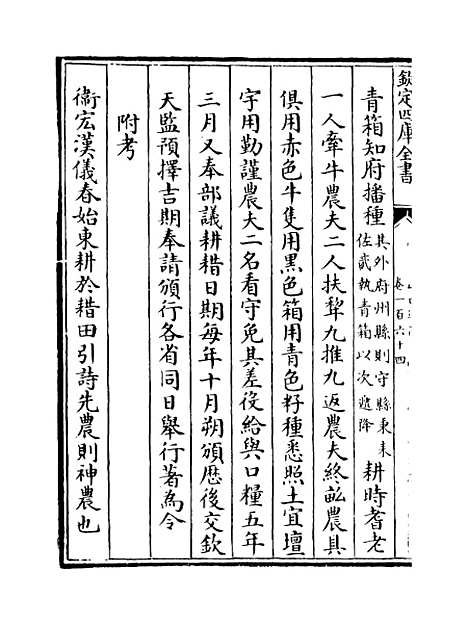 欽定四庫全書
卷一百六十四
青箱知府播種其外府州縣則守縣東耒佐貳執青箱以次遞降耕時耆老
一人牽牛農夫二人扶犂九推九返農夫終畝農具
俱用赤色牛隻用黑色箱用青色籽種悉照土宜壇
宇用勤謹農夫二名看守免其差役給與口糧五年
三月又奉部議耕耤日期每年十月朔頒厯後交欽
天監預擇吉期奉請頒行各省同日舉行著為令
附考
衞宏漢儀春始東耕於耤田引詩先農則神農也